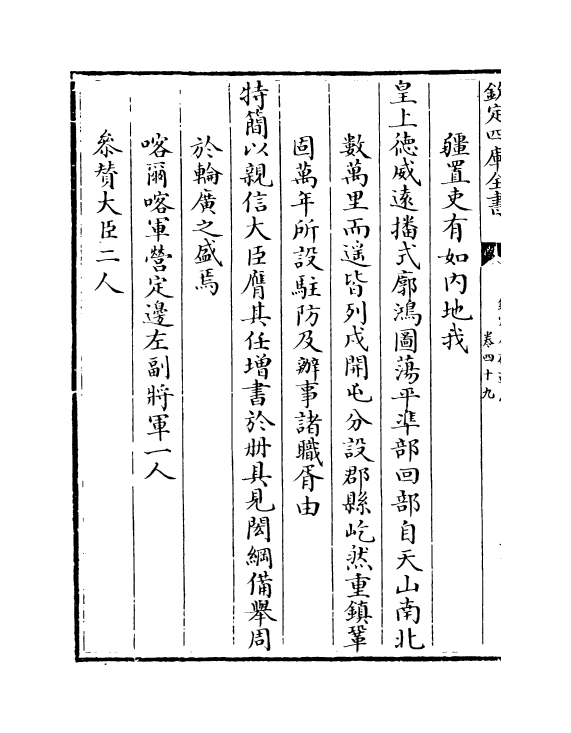 欽定四庫全書
卷四十九
疆置吏有如内地我
皇上德威遠播式廓鴻圖蕩平凖部回部自天山南北
數萬里而遥皆列戍開屯分設郡縣屹然重鎮鞏
固萬年所設駐防及辦事諸職胥由
特簡以親信大臣膺其任增書於册具見閎綱備舉周
於輪廣之盛焉
喀爾喀軍營定邊左副將軍一人
叅賛大臣二人